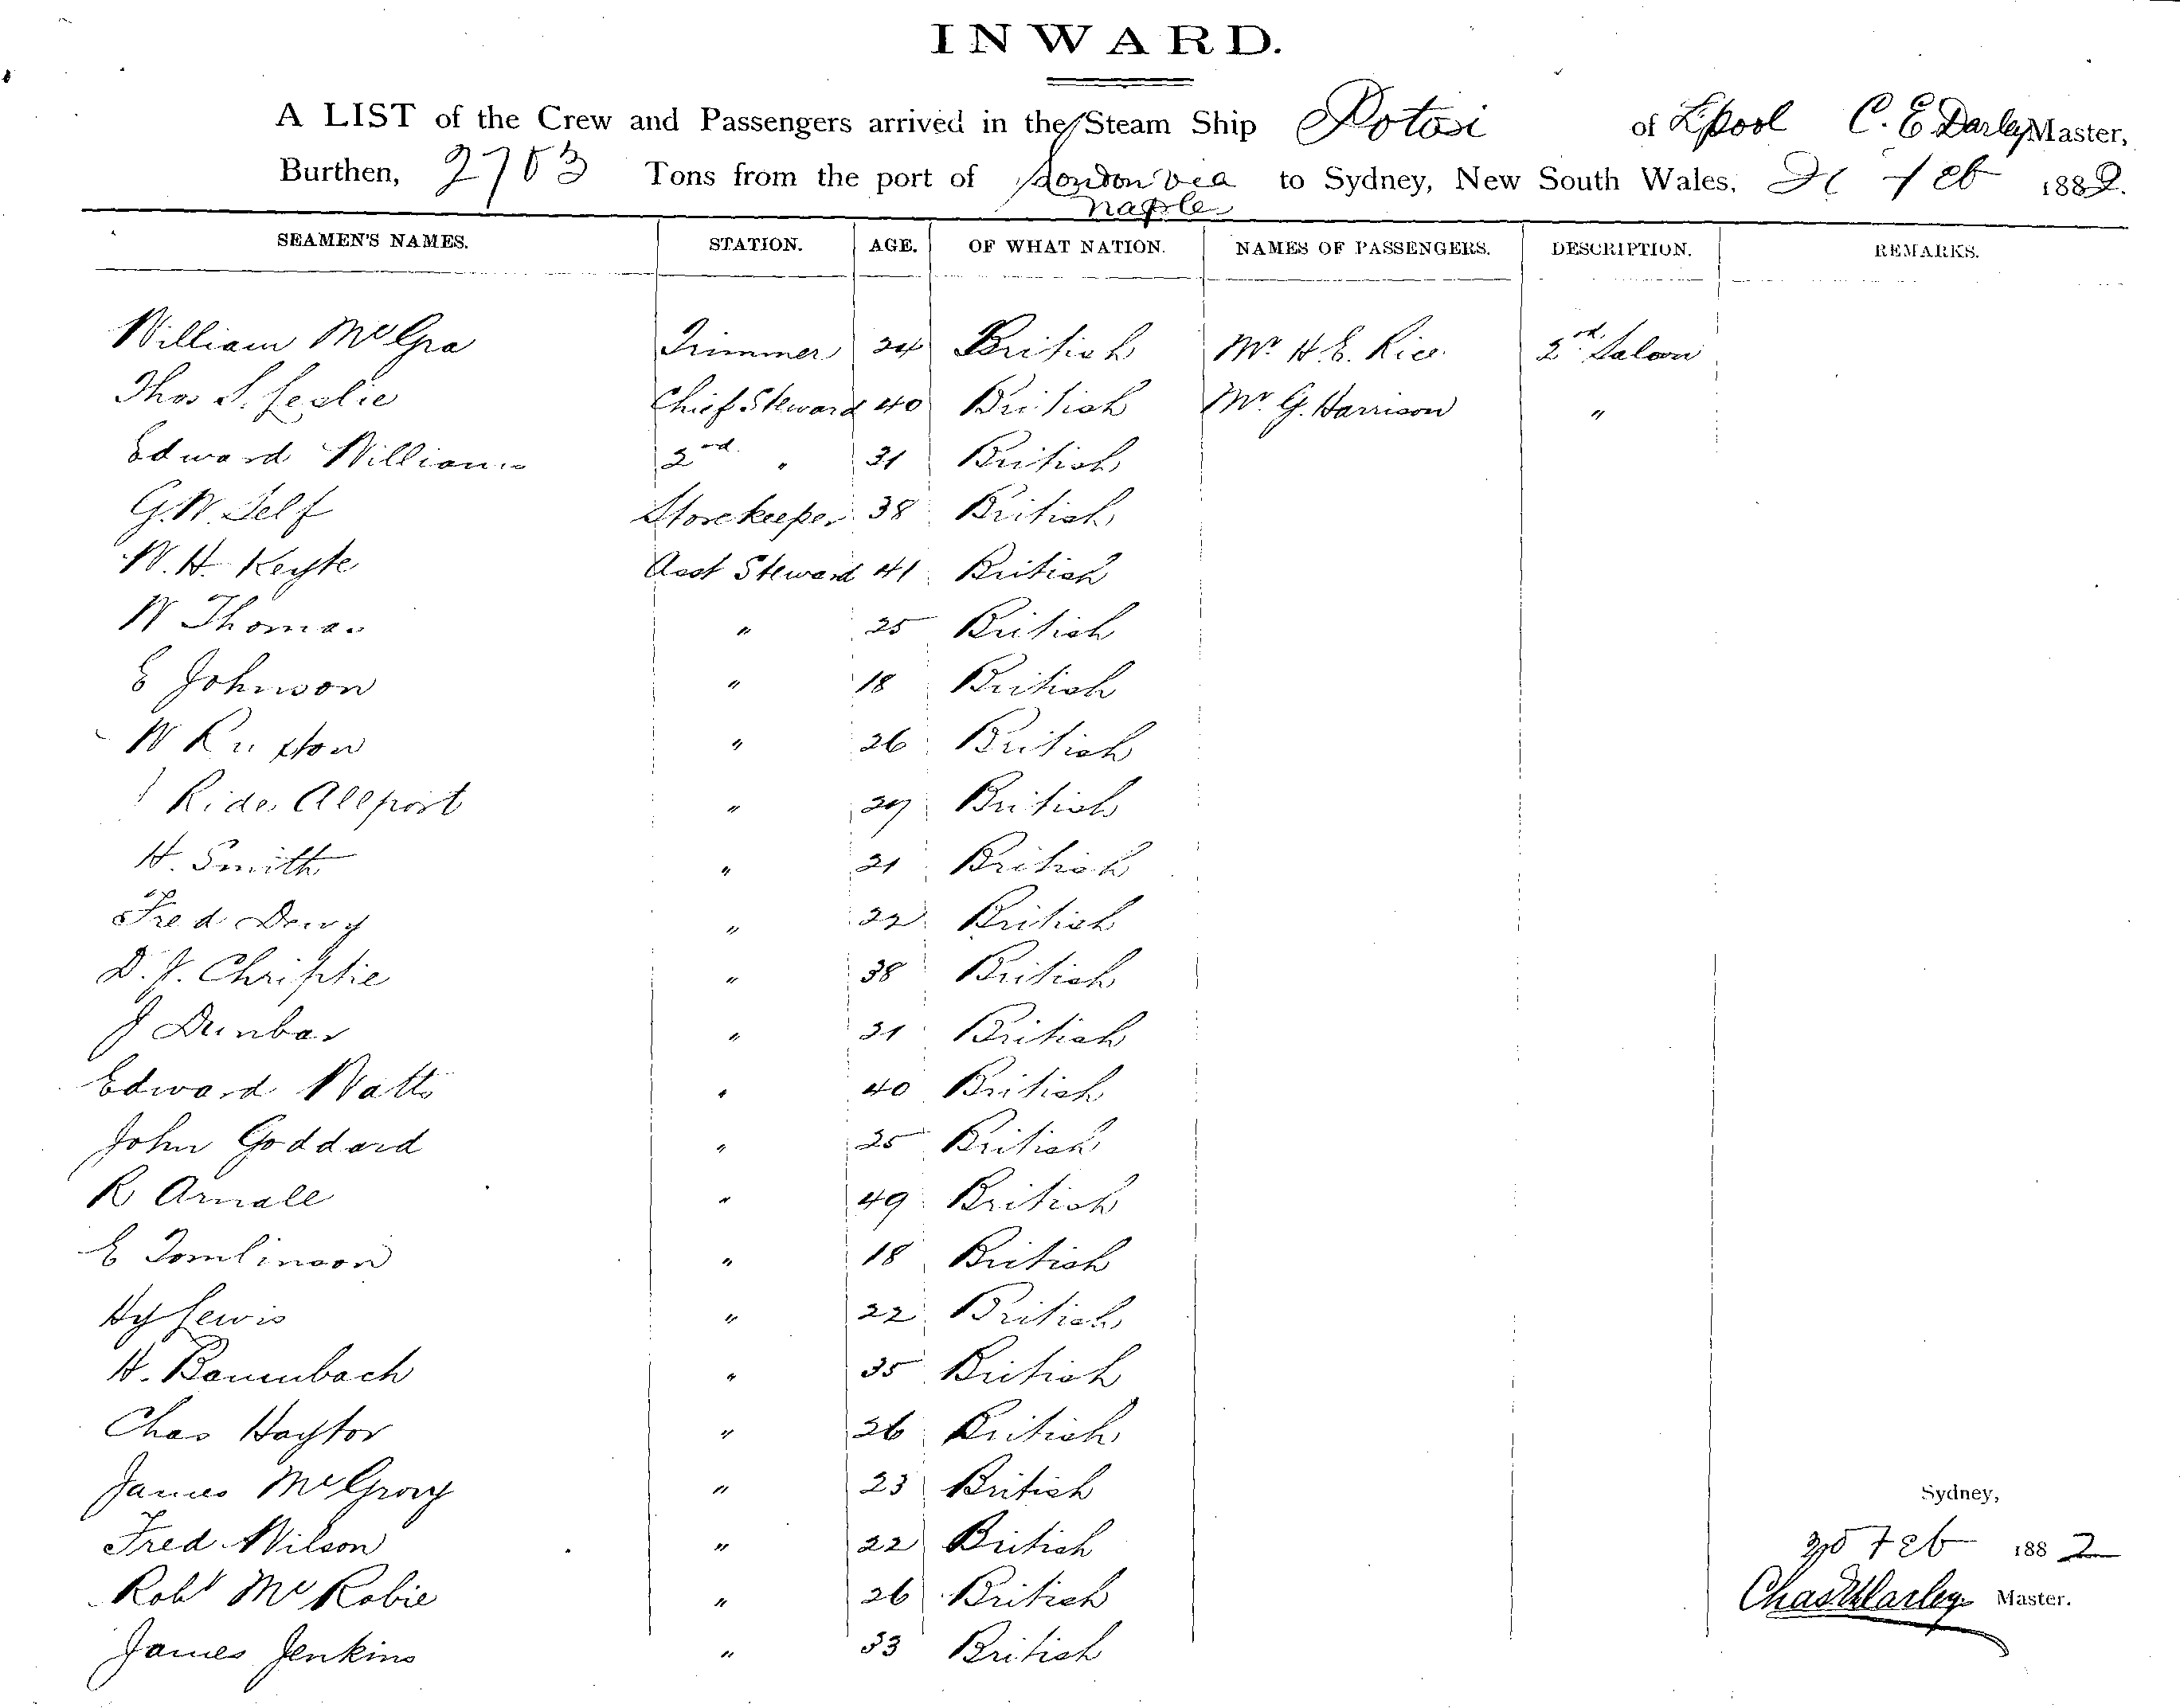 INWARD.
A LIST of the Crew and Passengers arrived in the Steam Ship Potosi of Lpool C. E Darley Master,
Burthen, 2703 Tons from the port of London via Naples to Sydney, New South Wales, Feb 1882.
SEAMEN'S NAMES. STATION. AGE. OF WHAT NATION. NAMES OF PASSENGERS. DESCRIPTION. REMARKS.
William McGra Trimmer 24 British Mr H. E. Rice 2nd Saloon
Thos S. Leslie Chief Steward 40 British Mr G. Harrison "
Edward Williams 2nd " 31 British
G. W. Self Storekeeper 38 British
W. H. Keyte Asst Steward 41 British
W Thomas " 25 British
E Johnson " 18 British
W Ruxton " 26 British
Rider Allport " 29 British
H. Smith " 21 British
Fred Dewy " 22 British
D. J. Christie " 38 British
J Dunbar " 31 British
Edward Watts " 40 British
John Goddard " 25 British
R Arnall " 49 British
E Tomlinson " 18 British
Hy Lewis " 22 British
H. Baumbach " 35 British
Chas Haytor " 26 British
James McGrory " 23 British
Fred Wilson " 22 British
Robt McRobie " 26 British
James Jenkins " 33 British
Sydney,
Feb 1882
Chas Darley Master.